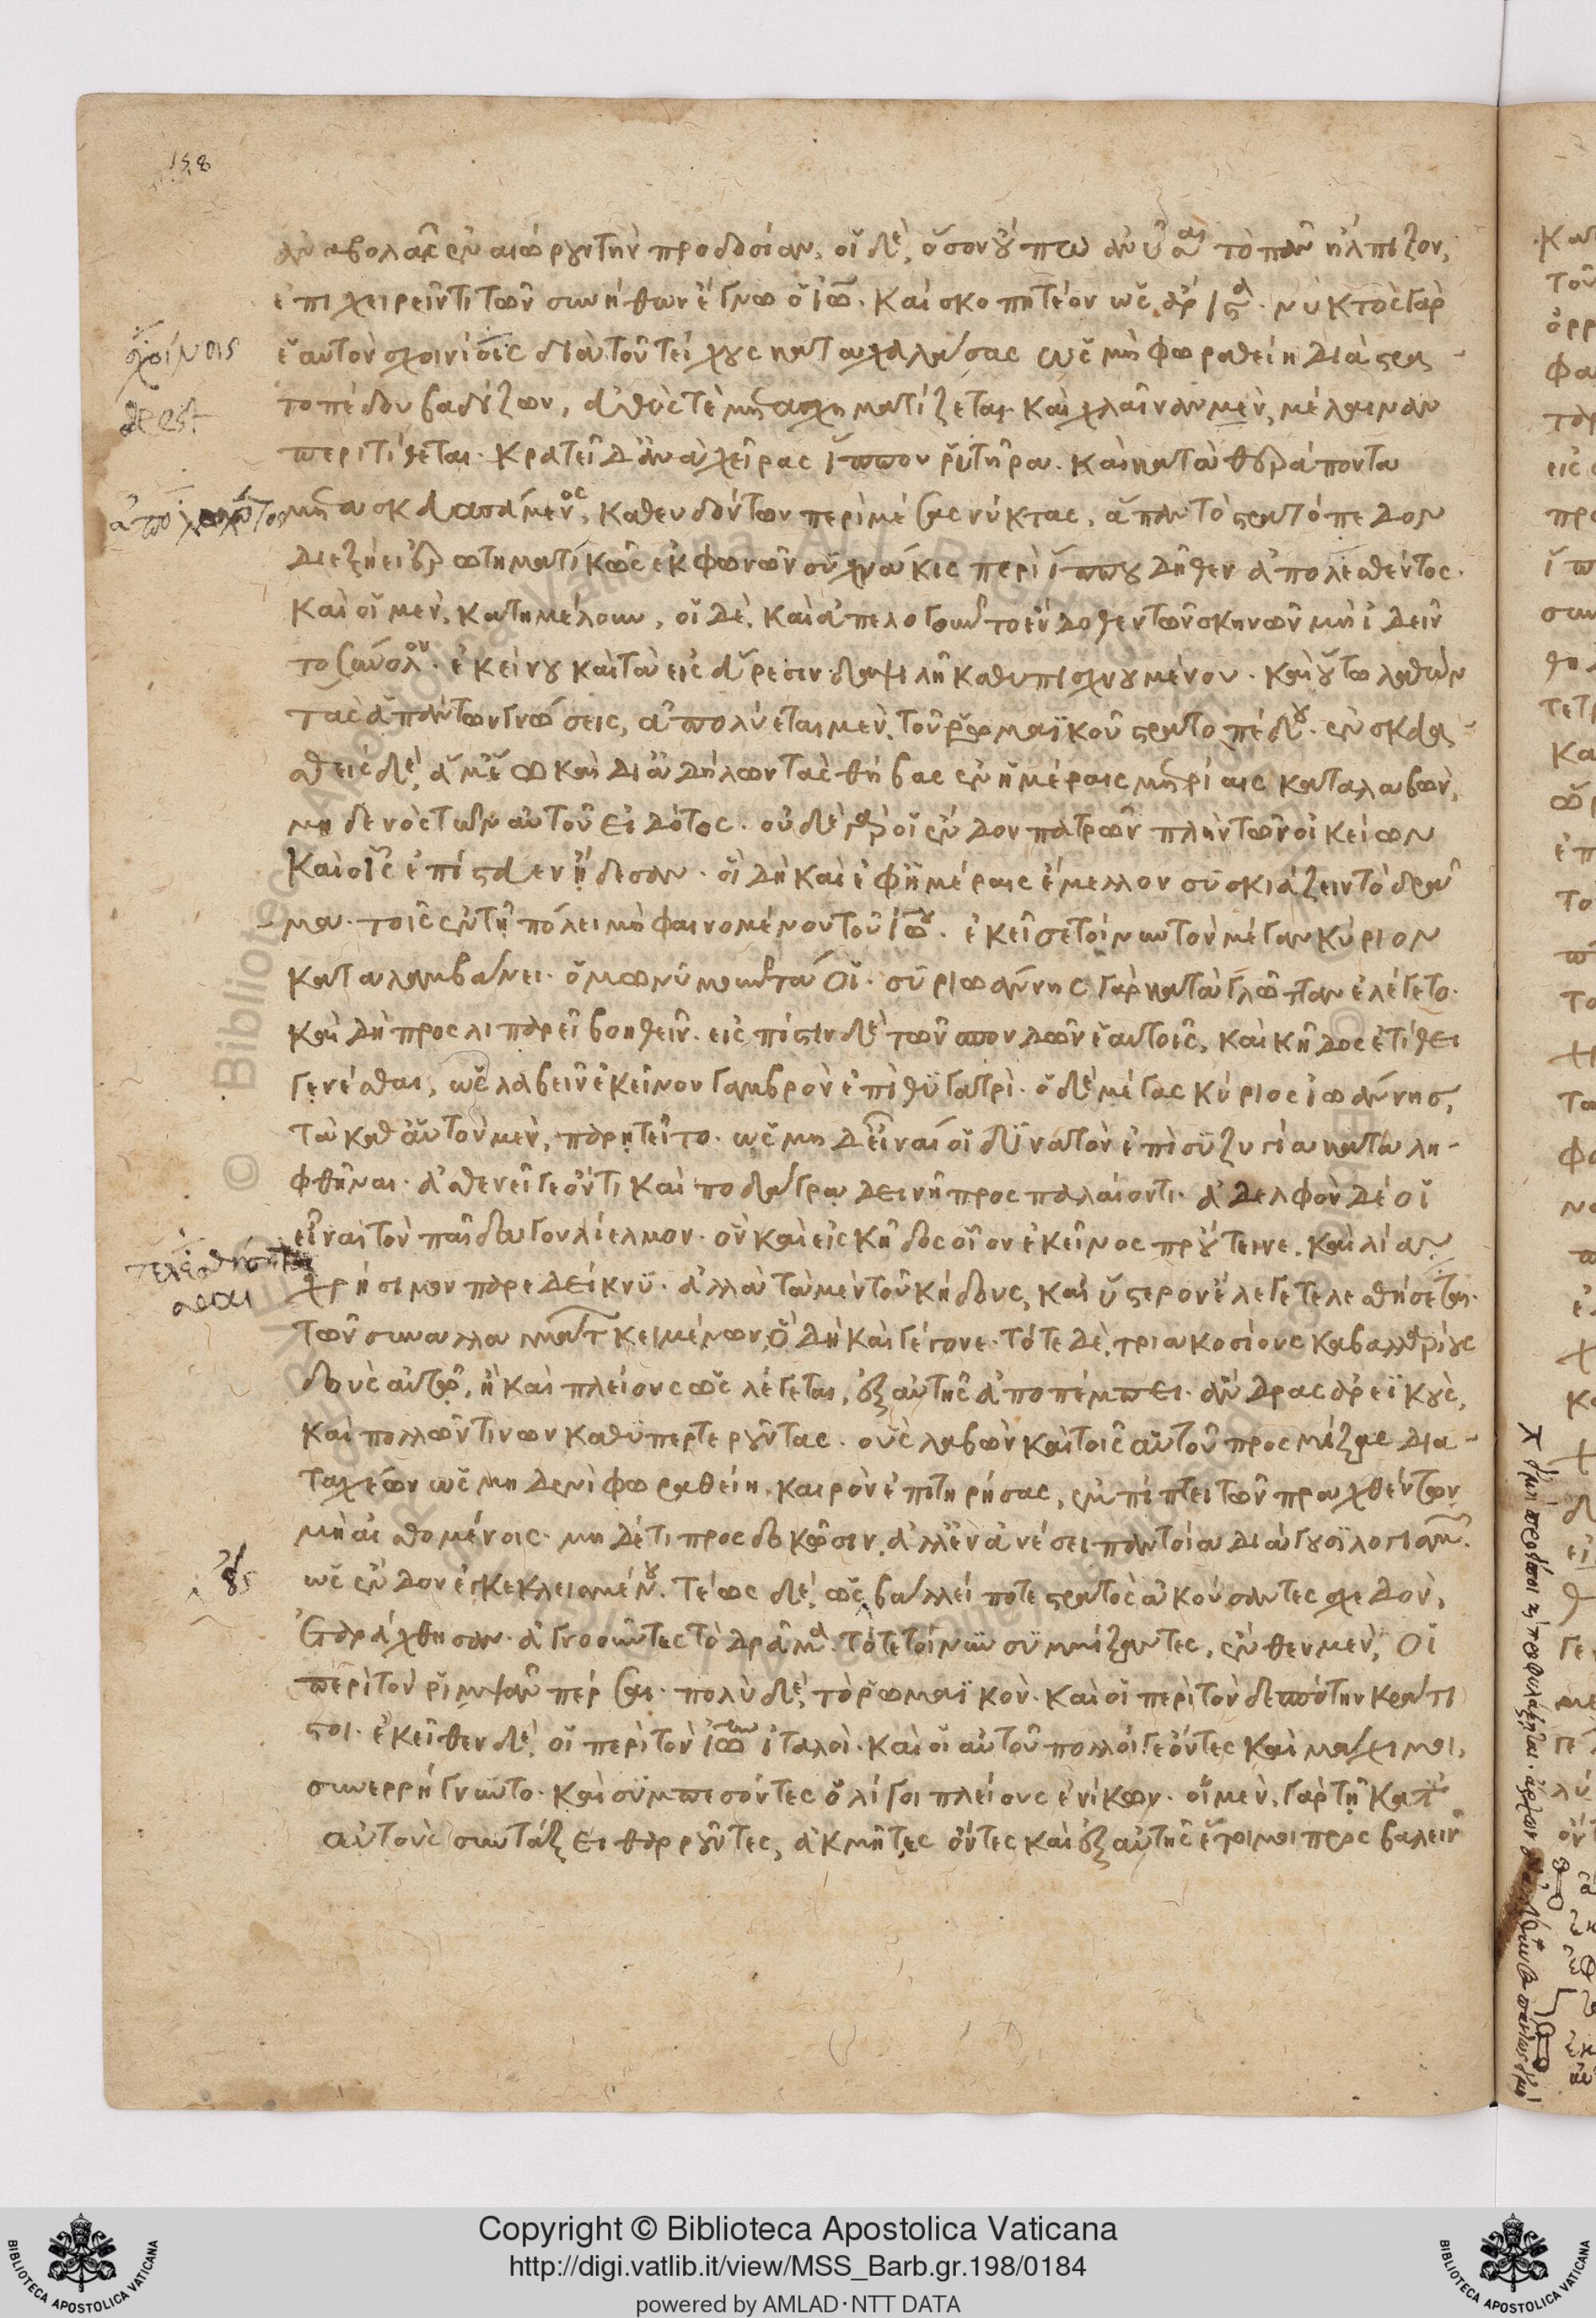 158
ἀναβολαῖς ἐναιωροῦντην προδοσίαν, οἱ δὲ, ὅσον οὔπω ἁλῶναι τὸ πᾶν ἤλπιζον,
ἐπιχειρεῖν τι τῶν συνήθων ἔγνω ὁ Ἰω. καὶ σκοπητέον ὡς ἄριστα. νυκτὸς γὰρ
ἑαυτὸν σχοινίοις διὰ τοῦ τείχους καταχαλάσας ὡς μὴ φωραθείη διὰ στρα-
τοπέδου βαδίζων, εὐθὺς μετασχηματίζεται καὶ χλαῖναν μὲν, μέλαιναν
περιτίθεται. κρατεῖ δ' ἀνὰ χεῖρας ἵππου ῥυτῆρα. καὶ κατὰ θεράποντα
μετασκευασάμενος, καθευδόντων περὶ μέσας νύκτας, ἅπαν τὸ στρατόπεδον
διεξῄει ἐρωτηματικῶς ἐκφωνῶν συχνάκις περὶ ἵππου δῆθεν ἀπολεσθέντος.
καὶ οἱ μὲν, κατημέλουν, οἱ δὲ, καὶ ἀπελογοῦντο ἔνδοθεν τῶν σκηνῶν μὴ ἰδεῖν
τοσύνολον. ἐκείνου καὶ τὰ εἰς εὕρεσιν δαψιλῆ καθυπισχνουμένου. καὶ οὕτω λαθὼν
τὰς ἁπάντων γνώσεις, ἀπολύεται μὲν, τοῦ ῥωμαϊκοῦ στρατοπέδου. ἐνσκευα-
σθεὶς δὲ, ἅμ' ἕῳ καὶ δι' ἀδήλων τὰς θήβας ἐν ἡμέραις μετρίαις καταλαβὼν,
μηδενὸς τῶν αὐτοῦ εἰδότος. οὐδὲ γὰρ οἱ ἔνδον πατρῶν πλὴν τῶν οἰκείων
καὶ οἷς ἐπίστευεν ᾔδεσαν. οἳ δὴ καὶ ἐφ' ἡμέραις ἔμελλον συσκιάζειν τὸ δρᾶ
μα. τοῖς ἐν τῇ πόλει μὴ φαινομένου τοῦ Ἰω. ἐκεῖσε τοίνυν τὸν μέγαν κύριον
καταλαμβάνει. ὁμωνυμοῦντά οἱ. σῦρ ἰωάννης γὰρ κατὰ γλῶτταν ἐλέγετο.
καὶ δὴ προσλιπαρεῖ βοηθεῖν. εἰς πίστιν δὲ τῶν σπονδῶν ἑαυτοῖς, καὶ κῆδος ἐτίθει
γενέσθαι, ὡς λαβεῖν ἐκεῖνον γαμβρὸν ἐπὶ θυγατρὶ. ὁ δὲ μέγας κύριος ἰωάννης,
τὰ καθ' αὑτὸν μὲν, παρῃτεῖτο. ὡς μηδ' εἶναί οἱ δυνατὸν ἐπὶ συζυγία καταλη-
φθῆναι. ἀσθενεῖ γε ὄντι καὶ ποδάγρᾳ δεινῇ προσπαλαίοντι. ἀδελφὸν δέ οἱ
εἶναι τὸν παῖδα γουλίελμον. ὃν καὶ εἰς κῆδος οἷον ἐκεῖνος προὔτεινε, καὶ λίαν
χρήσιμον παρεδείκνυ. ἀλλὰ τὰ μὲν τοῦ κήδους, καὶ ὕστερον ἔλεγε τελεσθήσεται.
τῶν συναλλαγμάτων κειμένων, ὃ δὴ καὶ γέγονε. τότε δὲ, τριακοσίους καβαλλαρίους
δοὺς αὐτῷ, ἢ καὶ πλείους ὡς λέγεται, ἐξ αὐτῆς ἀποπέμπει. ἄνδρας ἀρεϊκοὺς,
καὶ πολλῶν τινων καθυπερτεροῦντας. οὓς λαβὼν καὶ τοῖς αὑτοῦ προσμίξας δια-
ταχέων ὡς μηδενὶ φωραθείη. καιρὸν ἐπιτηρήσας, ἐμπίπτει τῶν πραχθέντων
μὴ αἰσθομένοις. μηδέ τι προσδοκῶσιν, ἀλλ' ἐν ἀνέσει παντοία διάγουσι λογισμῶν.
ὡς ἔνδον ἐγκεκλεισμένου. τέως δὲ, ὡς βάλλει ποτε στρατὸς ἀκούσαντες σχεδὸν,
ἐταράχθησαν. ἀγνοοῦντες τὸ δρᾶμα. τότε τοίνυν συμμίξαντες, ἔνθεν μὲν, οἱ
περὶ τὸν ῥιμψᾶν πέρσαι. πολὺ δὲ, τὸ ῥωμαϊκὸν. καὶ οἱ περὶ τὸν δεσπότην κράτι
στοι. ἐκεῖθεν δὲ, οἱ περὶ τὸν Ἰω ἰταλοὶ. καὶ οἱ αὐτοῦ πολλοί γε ὄντες καὶ μάχιμοι,
συνερρήγνυντο. καὶ συμπεσόντες ὀλίγοι πλείους ἐνίκων. οἱ μὲν, γὰρ τῇ κατ'
αὐτοὺς συντάξει θαρροῦντες, ἀκμῆτες ὄντες καὶ ἐξ αὐτῆς ἕτοιμοι προσβαλεῖν
σχοίνοις
deest
Copyright © Biblioteca Apostolica Vaticana
http://digi.vatlib.it/view/MSS_Barb.gr.198/0184
powered by AMLAD·NTT DATA
BIBLIOTECA APOSTOLICA VATICANA
BIBLIOTECA APOSTOLICA VATICANA